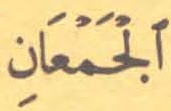 ٱلۡجَمۡعَانِ